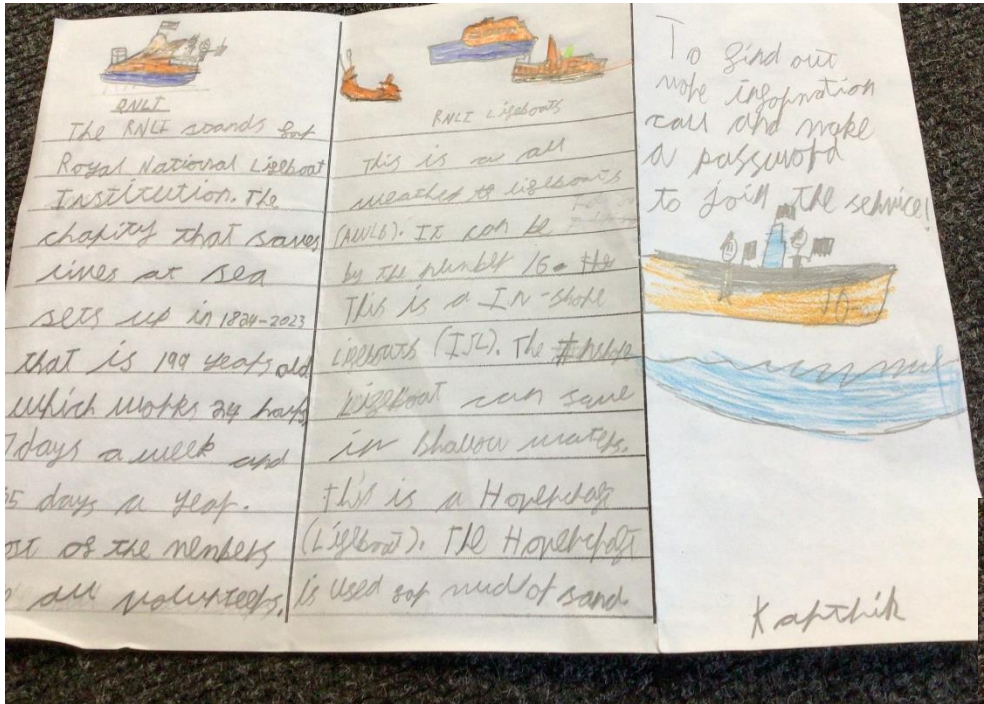 RNLI
The RNLI stands for
Royal National Lifeboat
Institution. The
charity that saves
lives at sea
sets up in 1824-2023
that is 199 years old
which works 24 hours
7 days a week and
65 days a year.
ost of the members
all volunteers.
RNLI Lifeboats
This is a all
weather lifeboats
(AWLB). It can be
by the number 16. the
This is a In-shore
Lifeboats (ISL). The
Lifeboat can save
in shallow waters.
this is a Hovercraft
(Lifeboat). The Hovercraft
is used for mud/or sand
To find out
more information
call and make
a password
to join the service!
16
Karthik